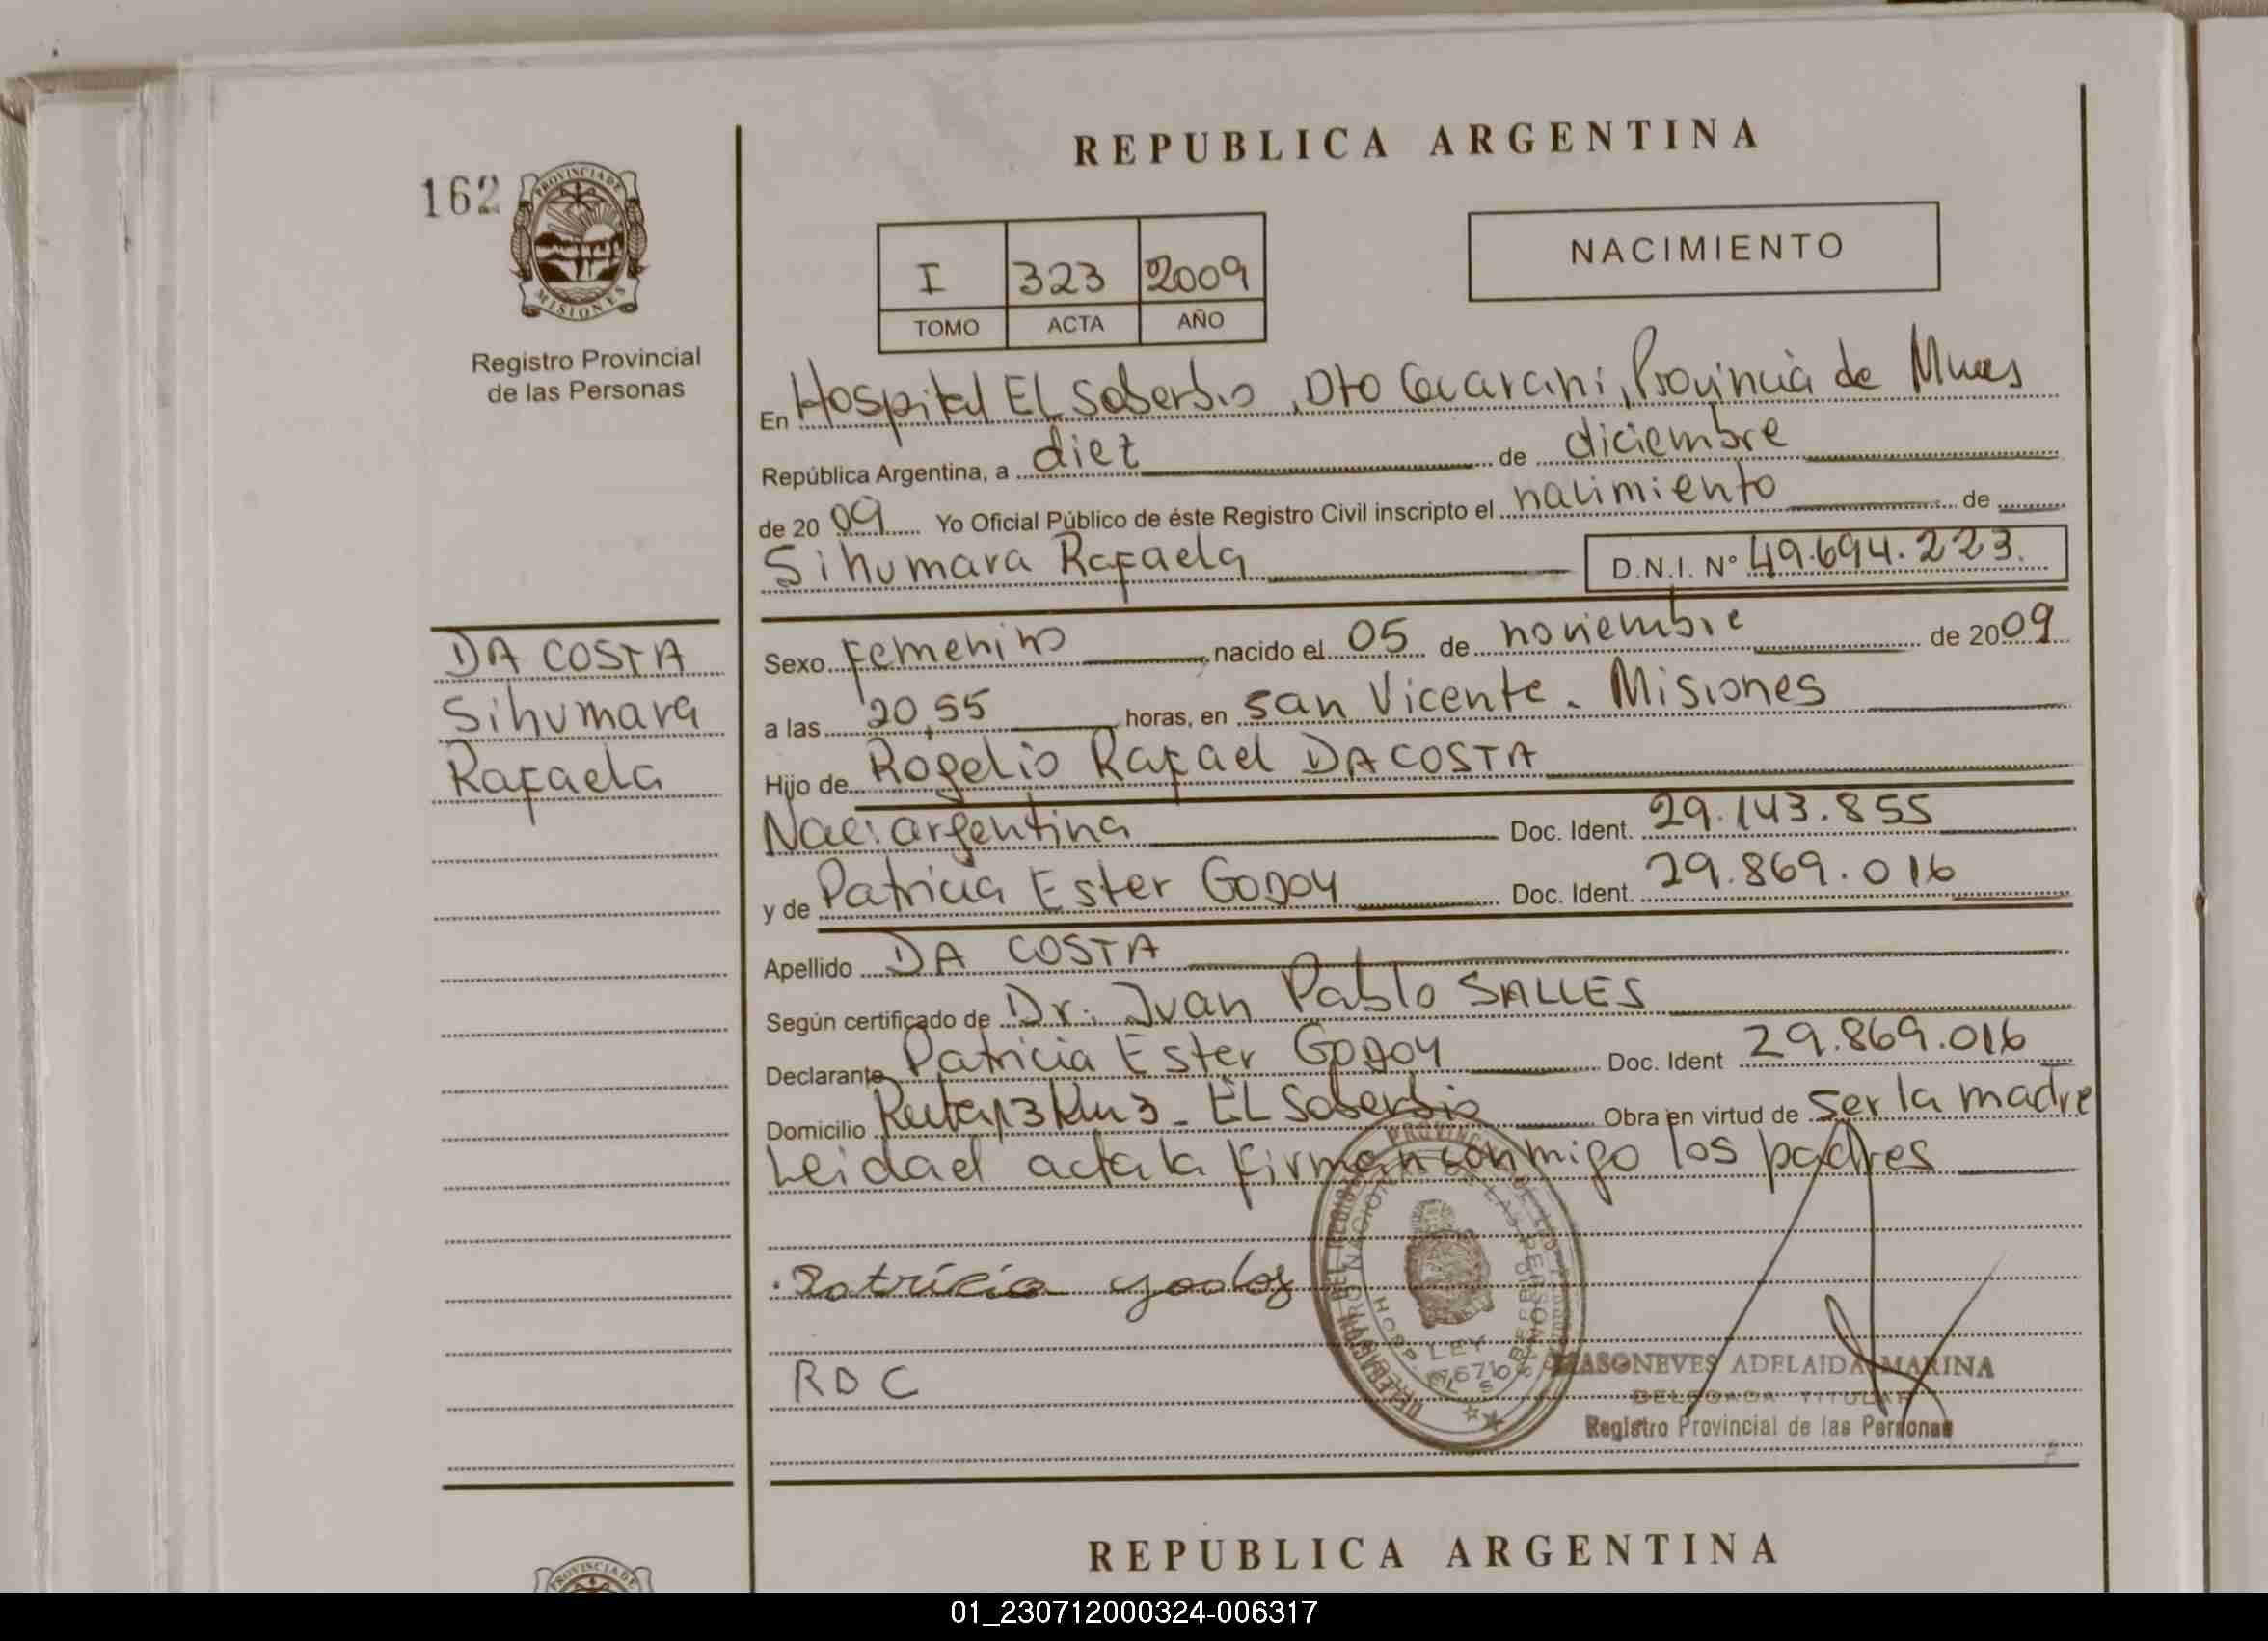 REPUBLICA ARGENTINA
162
PROVINCIA DE
MISIONES
Registro Provincial
de las Personas
I 323 2009
TOMO ACTA AÑO
NACIMIENTO
En Hospital EL Soberbio, Dto Guarani, Provincia de Mnes
República Argentina, a diez de diciembre
de 2009 Yo Oficial Público de éste Registro Civil inscripto el nacimiento de
Sihumara Rafaela D.N.I. Nº 49.694.223.
DA COSTA
Sihumara
Rafaela
Sexo Femenino nacido el 05 de noviembre de 2009
a las 20,55 horas, en San Vicente - Misiones
Hijo de Rogelio Rafael DA COSTA
Nac: argentina Doc. Ident. 29.143.855
y de Patricia Ester GODOY Doc. Ident. 29.869.016
Apellido DA COSTA
Según certificado de Dr. Juan Pablo SALLES
Declarante Patricia Ester GODOY Doc. Ident 29.869.016
Domicilio Ruta 13 km 3 - EL Soberbio Obra en virtud de ser la madre
Leida el acta la firman conmigo los padres
Patricia godoy
RDC
HOSP. EL SOBERBIO
LEY
MASONEVES ADELAIDA MARINA
DELEGADA TITULAR
Registro Provincial de las Personas
REPUBLICA ARGENTINA
PROVINCIA DE
01_230712000324-006317